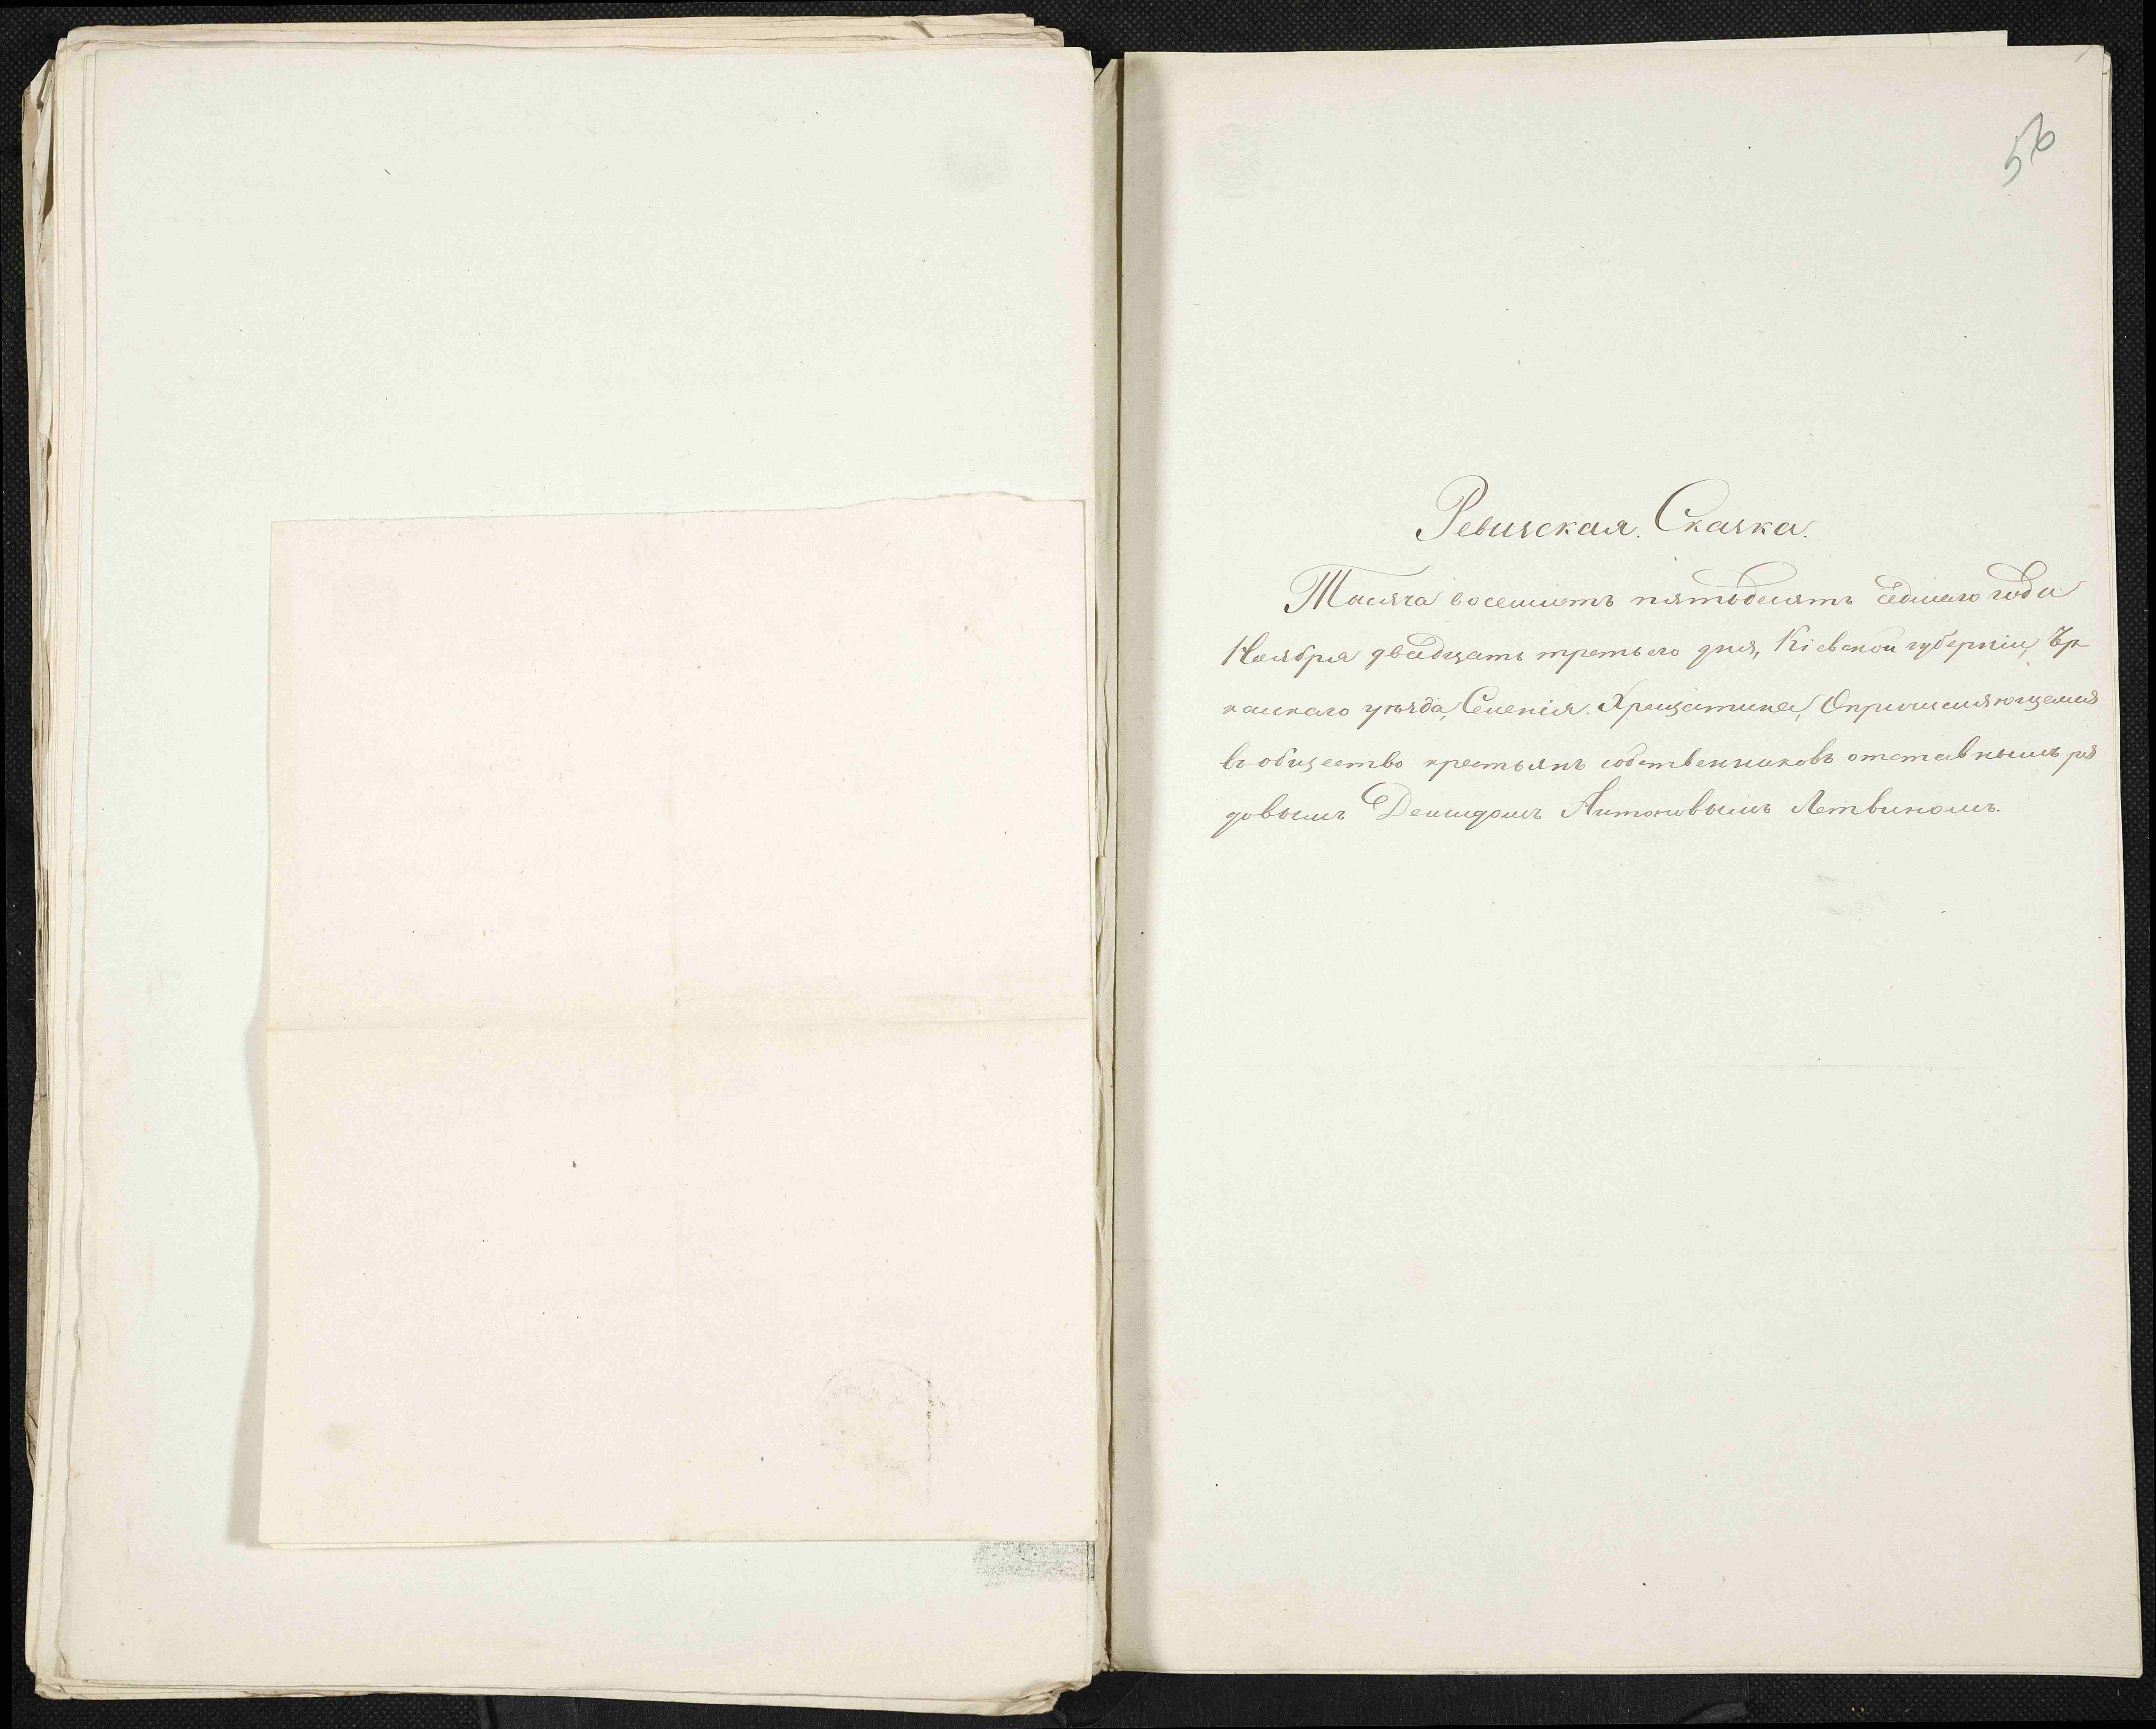 56
Ревизская. Сказка.
Тысяча восемьсотъ пятьдесятъ седмаго года
Ноября двадцать третьего дня, Кіевской губерніи, Чер
каскаго уѣзда, Селенія. Хрещатика, О причисляющемся
въ общество крестьянъ собственниковъ отставнымъ ря
довымъ Демидомъ Антоновымъ Летвиномъ.